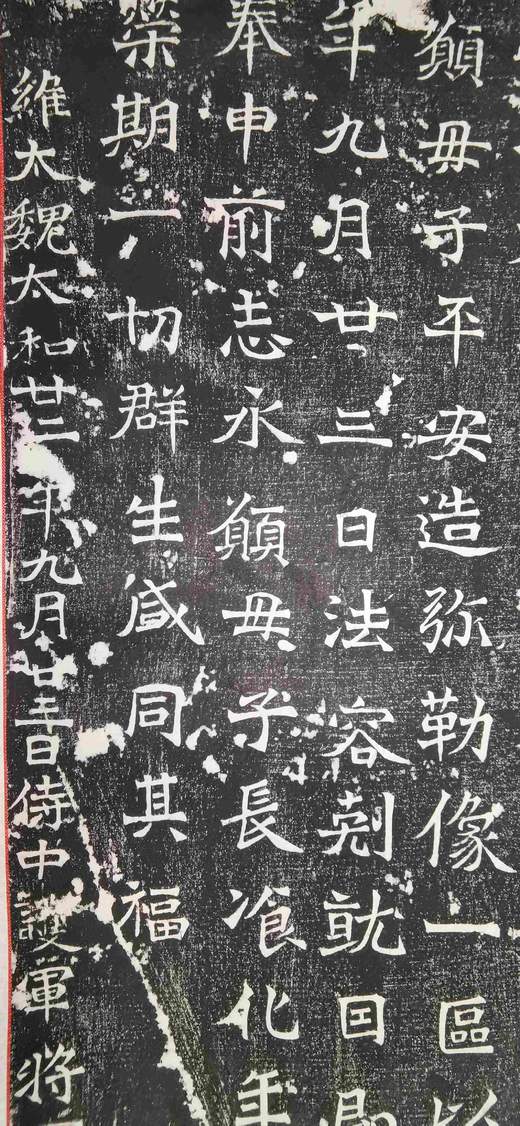 顚母子平安造弥勒像一區以
年九月廿三日法容剋就因即
奉申前志永顚母子長飡化年
榮期一切群生咸同其福
維太魏太和廿二年九月廿三日侍中護軍將